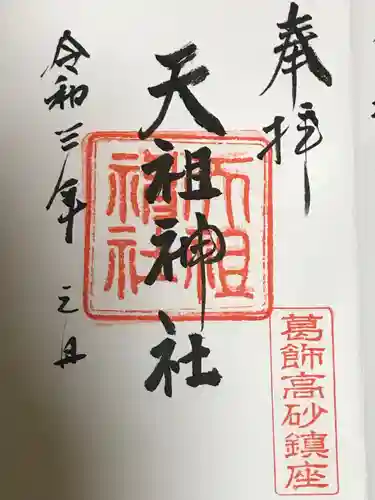 奉拝
葛飾高砂鎮座
天祖神社
天祖神社
令和三年 元旦